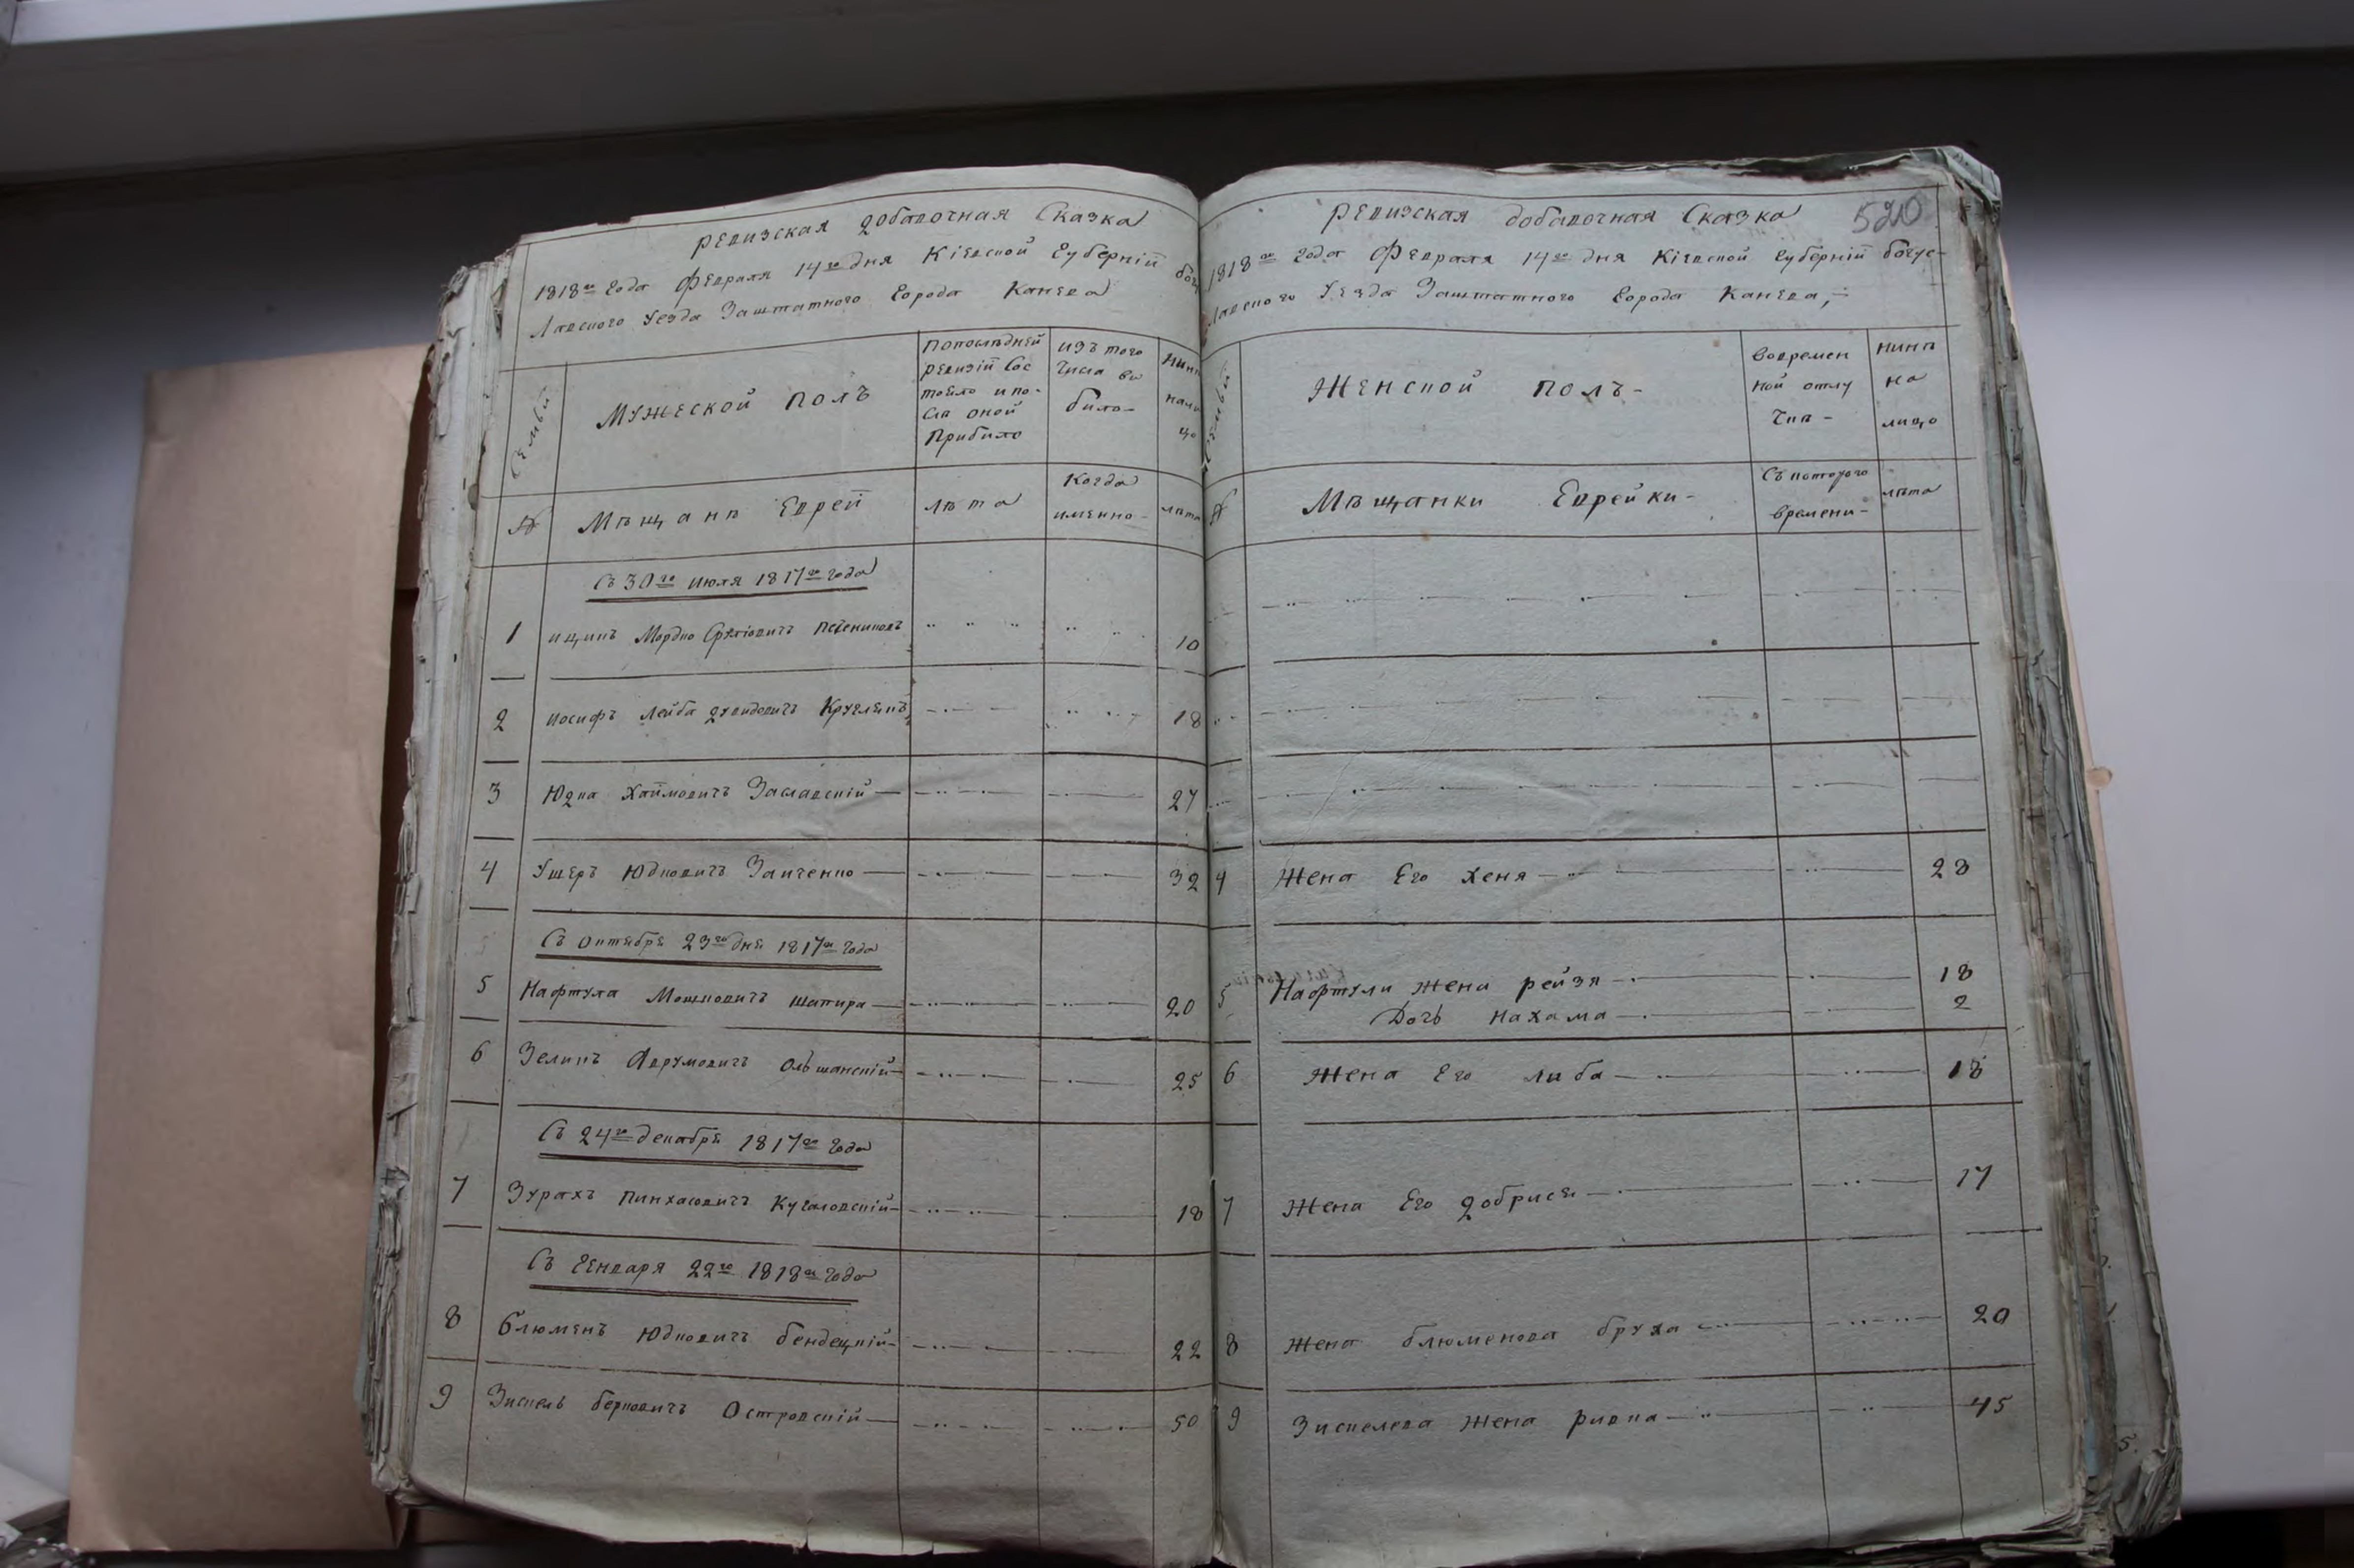 Ревизская добавочная Сказка
1818го года Февраля 14го дня Кіевской Губерніи Богу
славского Уезда Заштатного Города Канева
Семьи
Мужеской полъ
По последней
ревизіи сос
тояло и по-
сла оной
прибило
изъ того
числа вы
било-
ныне
нали
цо
№
Мѣщанѣ Еврей
лѣта
Когда
именно-
лѣта
Съ 30го июля 1817го года
1 ицикъ Мордко 10
2 иосифъ Лейба Дувидовичъ 18
3 Юдка Хаймовичъ Заславскій 27
4 Ушеръ Юдковичъ Заиченко 32
Съ октября 23го дня 1817го года
5 Нафтула Мошковичъ Шапира 20
6 Зеликъ Аврумовичъ Ольшанскій 25
Съ 24го декабря 1817го года
7 Зурахъ Пинхасовичъ 18
Съ Генваря 22го 1818го года
8 Блюменъ Юдковичъ Бендецкій 22
9 Зискель Берковичъ Островскій 50
Ревизская добавочная Сказка
520
1818го года Февраля 14го дня Кіевской Губерніи Богус-
лавского Уезда Заштатного Города Канева,
Семьи
Женской полъ-
Вовремен
ной отлу
чкѣ-
нинѣ
на
лицо
№
Мѣщанки Еврейки-
Съ которого
времени-
лѣта
4 Жена Его Хеня 28
5 Нафтули Жена рейзя 18
Дочь Нахама 2
6 Жена Его Либа 18
7 Жена Его Добрися 17
8 Жена Блюменова бруха 20
9 Зискелева Жена ривка 45